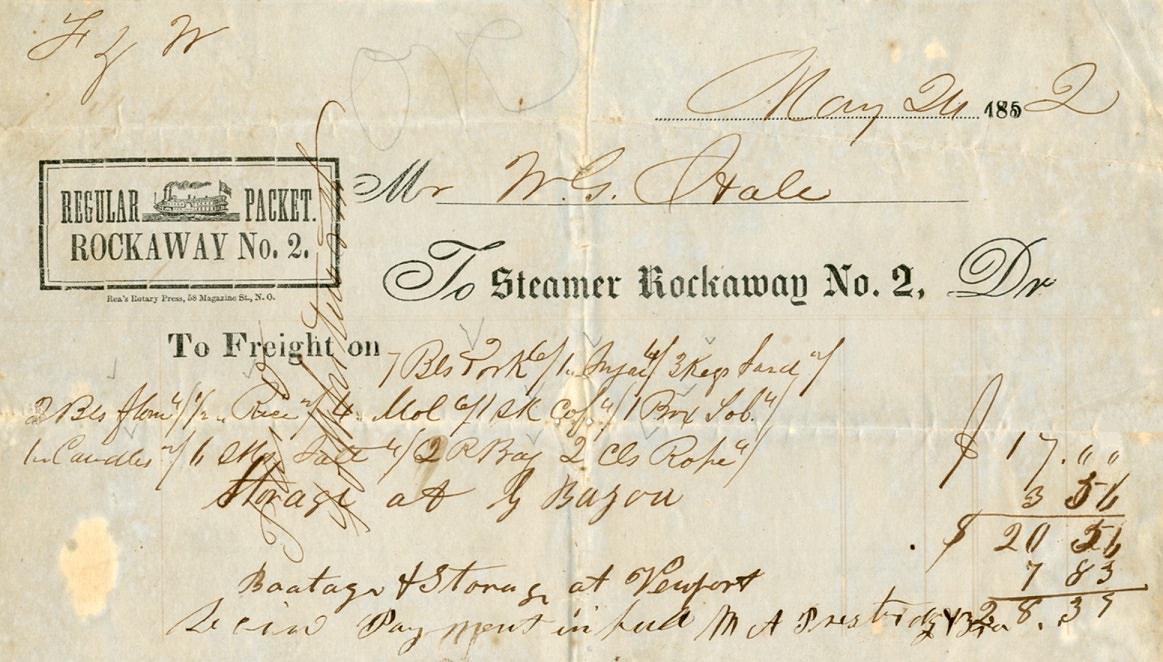 F & W
May 26 1852
REGULAR PACKET.
ROCKAWAY No. 2.
Rea's Rotary Press, 58 Magazine St., N. O.
Mr W. G. Hale
To Steamer Rockaway No. 2, Dr
To Freight on
7 Bls Pork 1 Sugar 3 Kegs Lard
2 Bls flour ½ Rice 4 Mol 1 Sk Coff 1 Box Tob.
1 Candles 6 Sks Salt 2 R Bag 2 Cls Rope $ 17.00
Storage at G Bayou 3 56
$ 20 56
Boatage & Storage at Newport 7 83
Recvd Payment in full M A 28.39